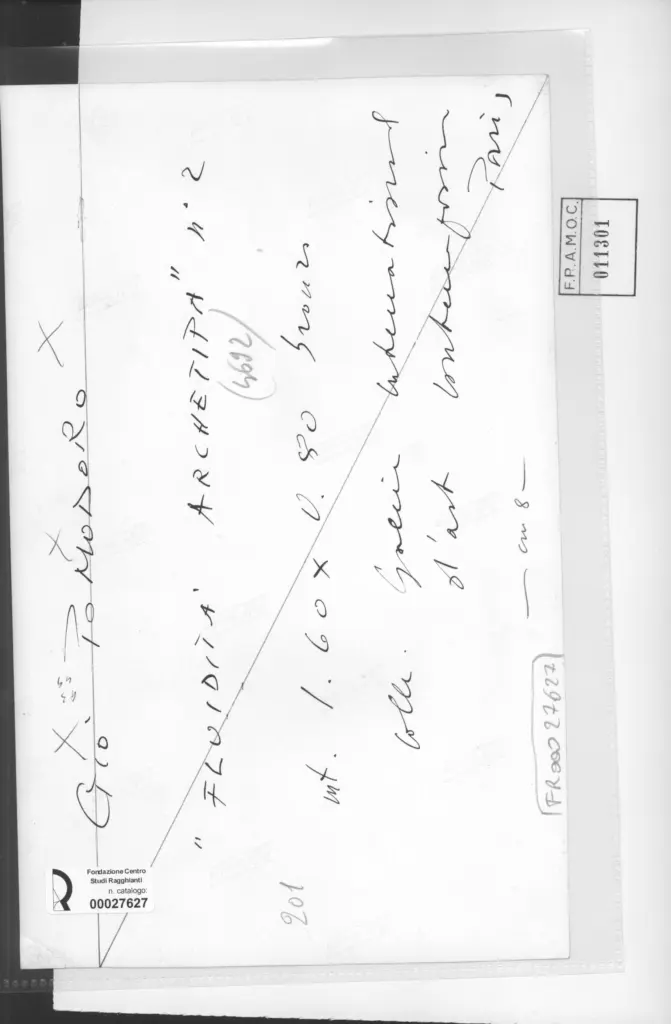 GIO' POMODORO
"FLUIDITA' ARCHETIPA" n° 2
(4692)
mt. 1.60 x 0.80 bronzo
Colle. Galerie internationale
d'art contemporain
Paris
— cm 8 —
201
FR00027627
F.P.A.M.O.C.
011301
Fondazione Centro
Studi Ragghianti
n. catalogo:
00027627